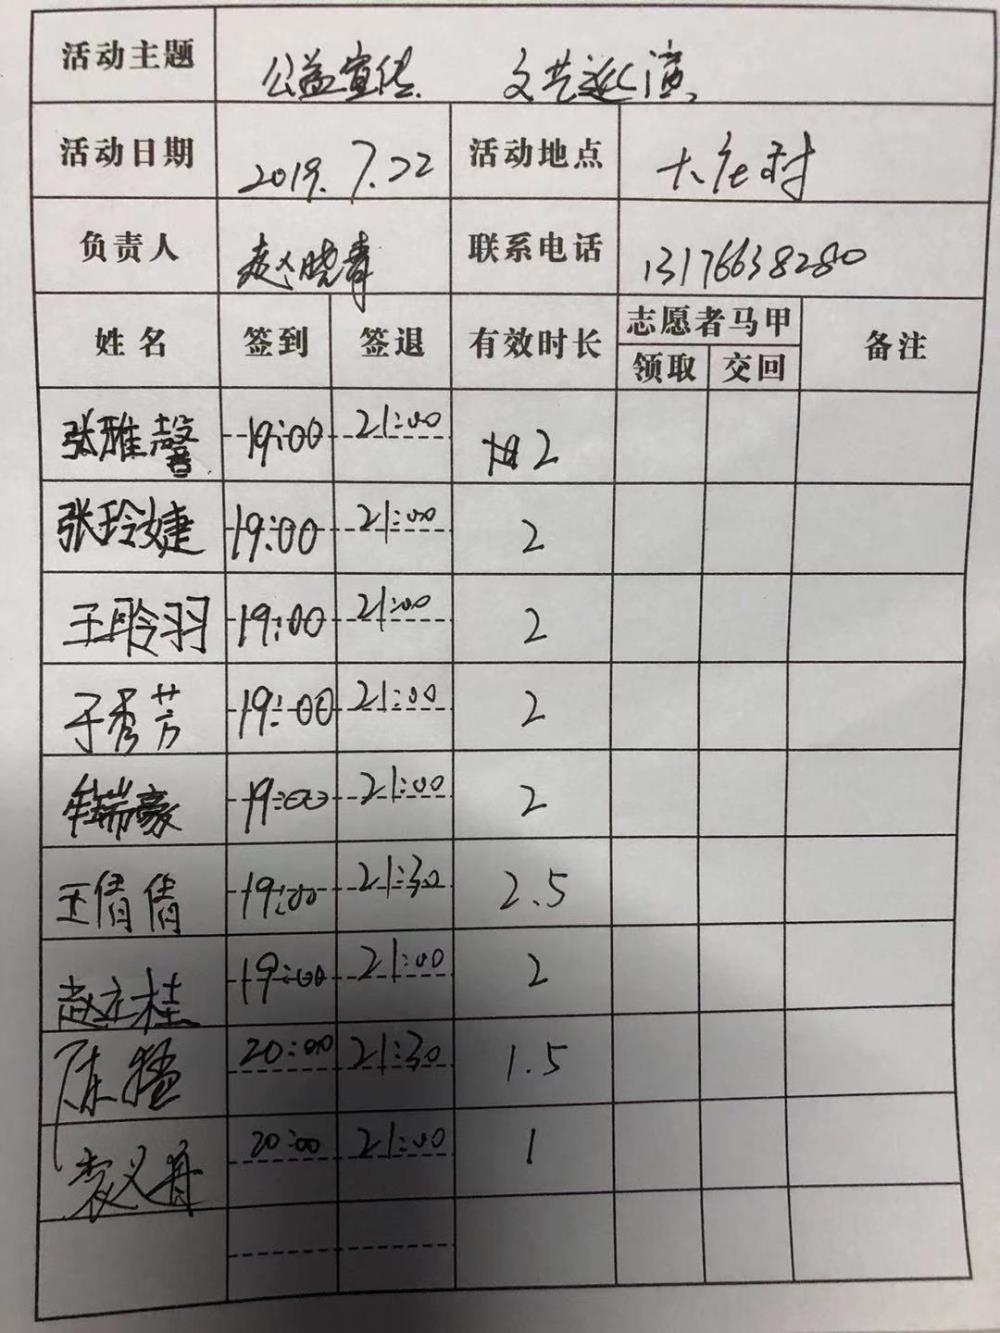 活动主题 公益宣传 文艺巡演
活动日期 2019.7.22 活动地点 大庄村
负责人 赵晓青 联系电话 13176638280
姓名 签到 签退 有效时长 志愿者马甲 备注
领取 交回
张雅馨 19:00 21:00 2
张玲婕 19:00 21:00 2
王聆羽 19:00 21:00 2
于秀芳 19:00 21:00 2
牟瑞豪 19:00 21:00 2
王倩倩 19:00 21:30 2.5
赵立桂 19:00 21:00 2
陈 20:00 21:30 1.5
袁义舟 20:00 21:00 1